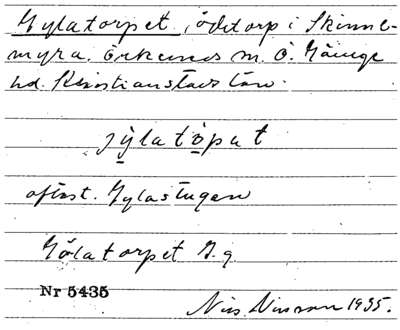 Gylatorpet, ödetorp i Skinne-
myra. Örkeneds sn. Ö. Göinge
hd. Kristianstads län.
jýlatòpat
oftast. Gylastugan
Gölatorpet
Nr 5435
Nils Nilsson 1935.